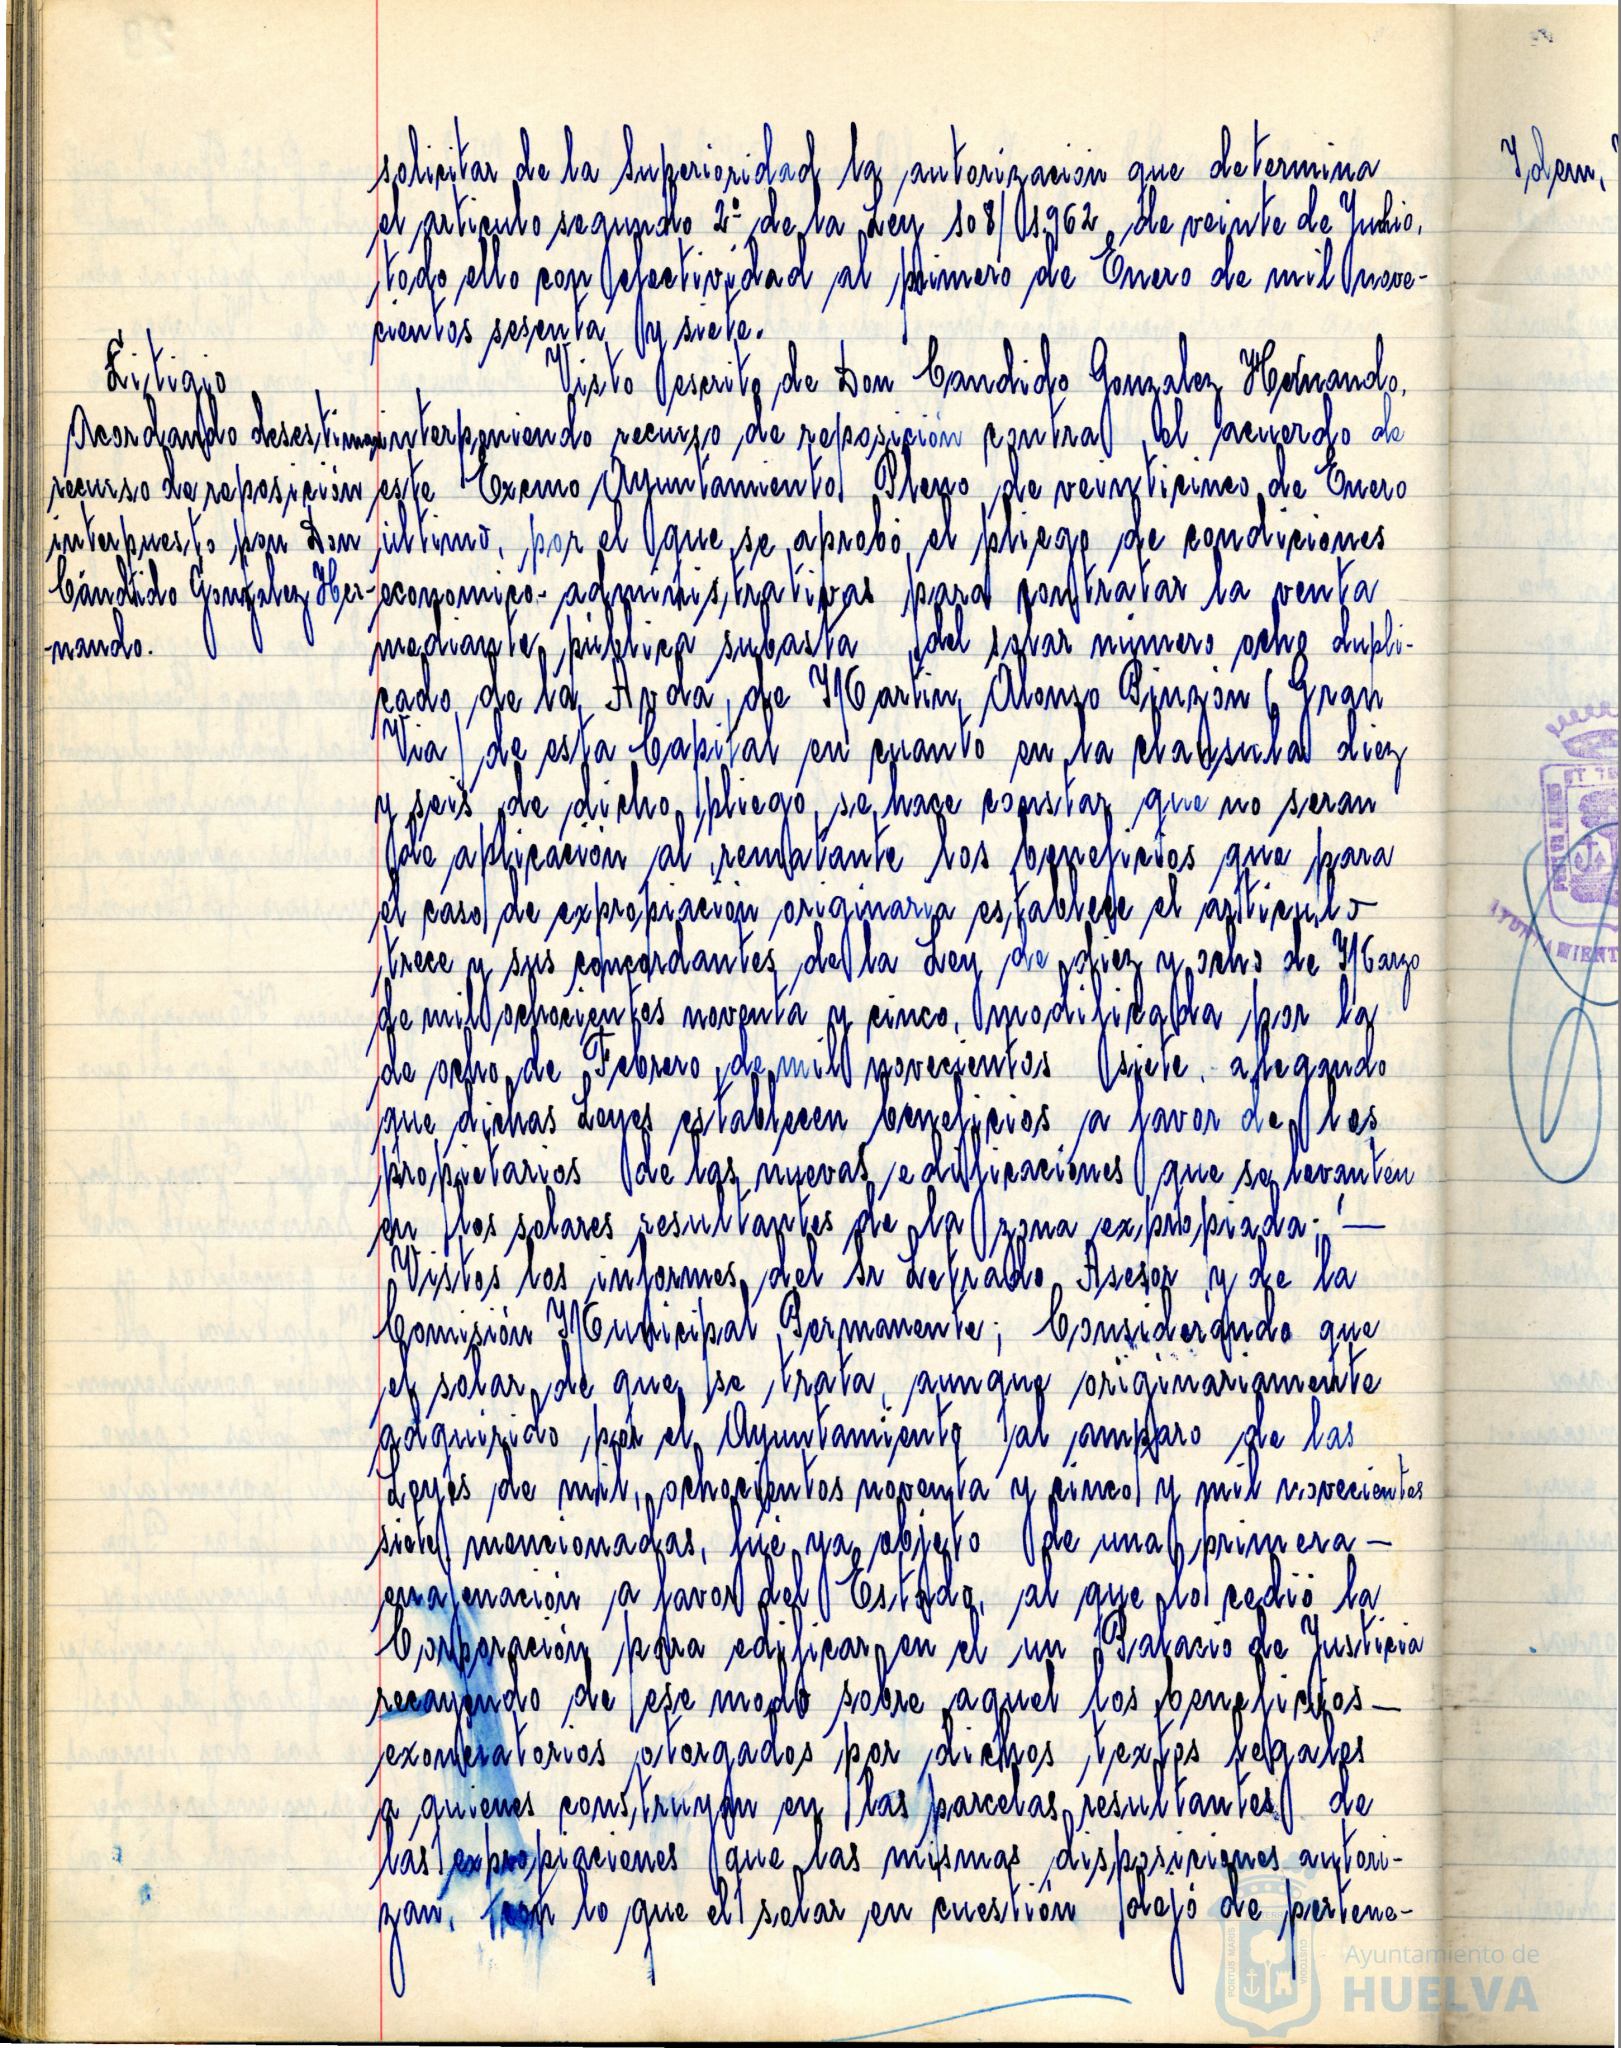 solicitar de la Superioridad la autorización que determina
el articulo segundo 2º de la Ley 108/1.962, de veinte de Junio,
todo ello con efectividad al primero de Enero de mil nove-
cientos sesenta y siete.
Litigio
Acordando desestimar
recurso de reposición
interpuesto por Don
Cándido Gonzalez Her-
nando.
Visto escrito de Don Candido Gonzalez Hernando,
interponiendo recurso de reposición contra el acuerdo de
este Excmo Ayuntamiento Pleno de veinticinco de Enero
último, por el que se aprobó el pliego de condiciones
economico-administrativas para contratar la venta
mediante pública subasta del solar número ocho dupli-
cado de la Avda, de Martin Alonso Pinzón (Gran
Via) de esta Capital en cuanto en la clausula diez
y seis de dicho pliego se hace constar que no seran
de aplicación al rematante los beneficios que para
el caso de expropiación originaria establece el articulo
trece y sus concordantes de la Ley de diez y ocho de Marzo
de mil ochocientos noventa y cinco, modificada por la
de ocho de Febrero de mil novecientos siete, alegando
que dichas Leyes establecen beneficios a favor de los
propietarios de las nuevas edificaciones que se levanten
en los solares resultantes de la zona expropiada; —
Vistos los informes del Sr Letrado Asesor y de la
Comisión Municipal Permanente; Considerando que
el solar de que se trata, aunque originariamente
adquirido por el Ayuntamiento al amparo de las
Leyes de mil, ochocientos noventa y cinco y mil novecientos
siete mencionadas, fué ya objeto de una primera —
enajenación a favor del Estado, al que lo cedió la
Corporación para edificar en el un Palacio de Justicia
recayendo de ese modo sobre aquel los beneficios —
exoneratorios otorgados por dichos textos legales
a quienes construyan en las parcelas resultantes de
las expropiaciones que las mismas disposiciones autori-
zan, con lo que el solar en cuestión dejó de pertene-
Idem,
Ayuntamiento de
HUELVA